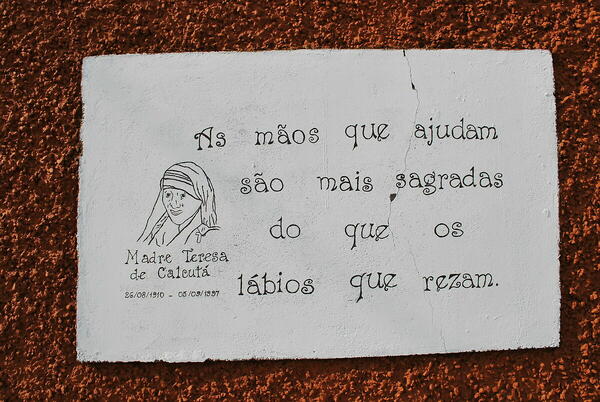 As mãos que ajudam
são mais sagradas
do que os
lábios que rezam.
Madre Teresa
de Calcutá
26/08/1910 - 05/09/1997